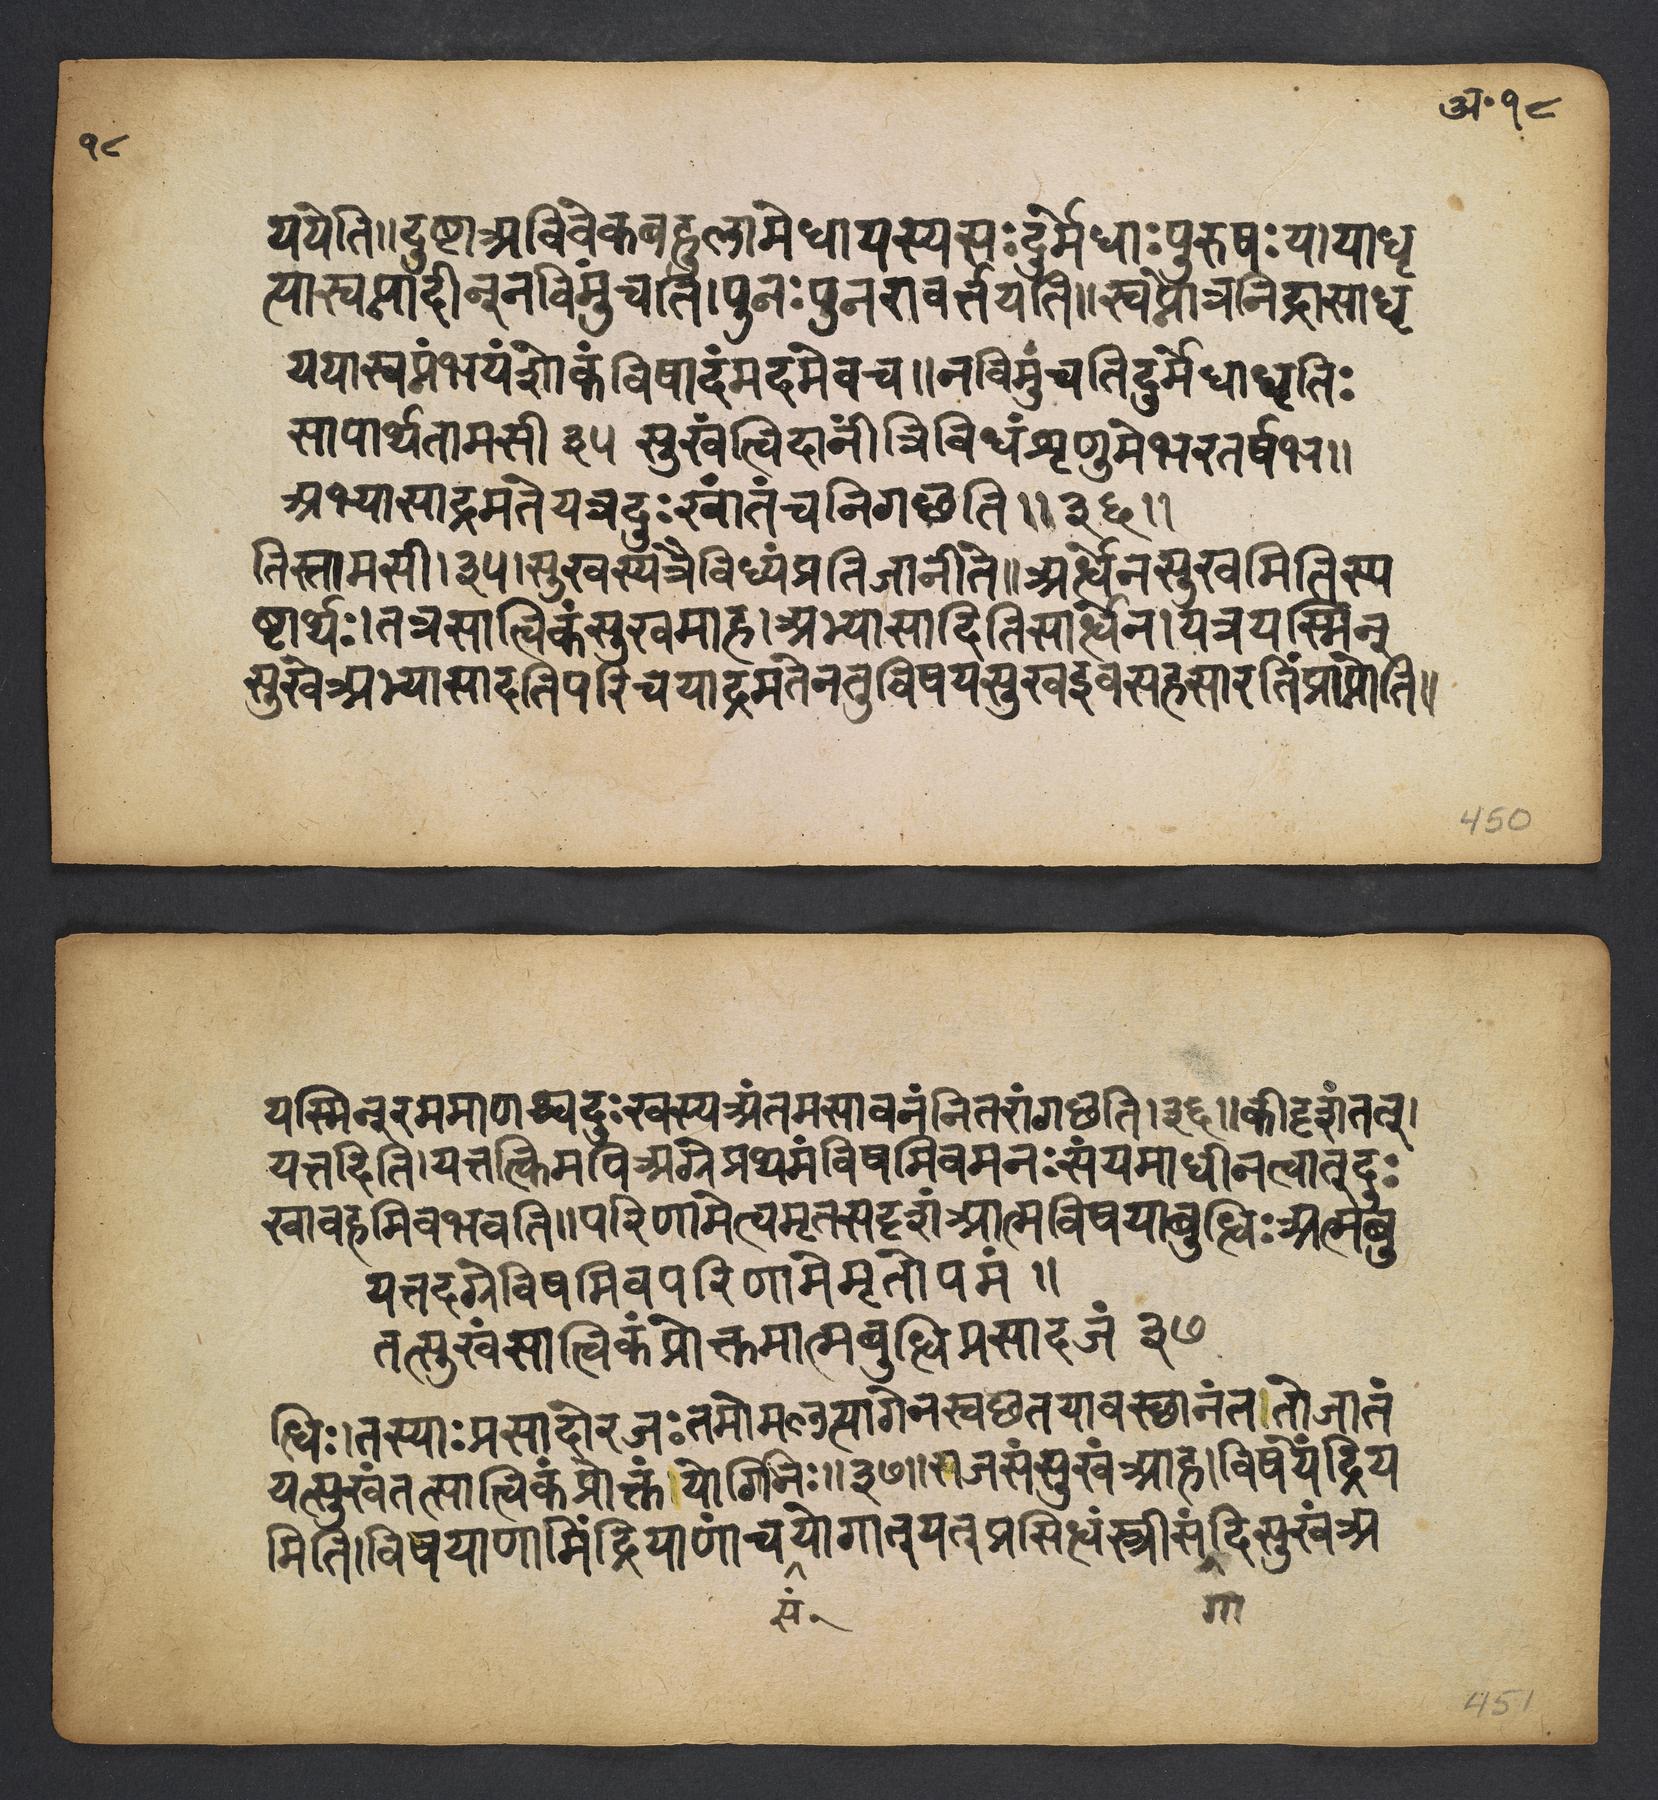 अ॰१८
१८
ययेति॥दुष्टाअविवेकबहुलामेधायस्यसःदुर्मेधाःपुरुषःयायाधृ
त्यास्वप्नादीन्नविमुंचति।पुनःपुनरावर्त्तयति॥स्वप्नोत्रनिद्रासाधृ
ययास्वप्नंभयंशोकंविषादंमदमेवच॥नविमुंचतिदुर्मेधाधृतिः
सापार्थतामसी ३५ सुखंत्विदानींत्रिविधंशृणुमेभरतर्षभ॥
अभ्यासाद्रमतेयत्रदुःखांतंचनिगछति॥३६॥
तिस्तामसी।३५।सुखस्यत्रैविध्यंप्रतिजानीते॥अर्त्धेनसुखमितिस्प
ष्टार्थः।तत्रसात्विकंसुखमाह।अभ्यासादितिसार्त्धेन।यत्रयस्मिन्
सुखेअभ्यासादतिपरिचयाद्रमतेनतुविषयसुखइवसहसारतिंप्राप्नोति॥
450
यस्मिन्रममाणश्चदुःखस्यअंतमसावनंनितरांगछति।३६॥कीदृशंतत्।
यत्तदिति।यत्तत्किमपिअग्रेप्रथमंविषमिवमनःसंयमाधीनत्वात्दुः
खावहमिवभवति॥परिणामेत्वमृतसदृशंआत्मविषयाबुध्धिःअत्मबु
यत्तदग्रेविषमिवपरिणामेमृतोपमं॥
तत्सुखंसात्विकंप्रोक्तमात्मबुध्धिप्रसादजं ३७
ध्धिः।तस्याःप्रसादोरजःतमोमलत्यागेनस्वछतयावस्छानंत।तोजातं
यत्सुखंतत्सात्विकंप्रोक्तं।योगिनिः॥३७॥राजसंसुखंआह।विषयेंद्रिय
मिति।विषयाणामिंद्रियाणांचयोगात्यत्प्रसिध्धंस्त्रीसंदिसुखंअ
सं॰ गा
451